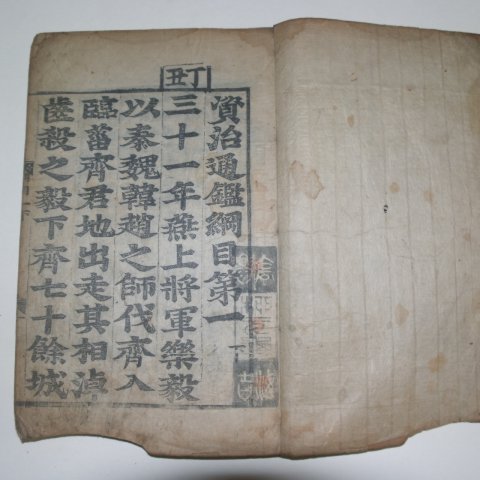 資治通鑑綱目第一
下
丁丑
三十一年燕上將軍樂毅
以秦魏韓趙之師伐齊入
臨菑齊君地出走其相淖
齒殺之毅下齊七十餘城